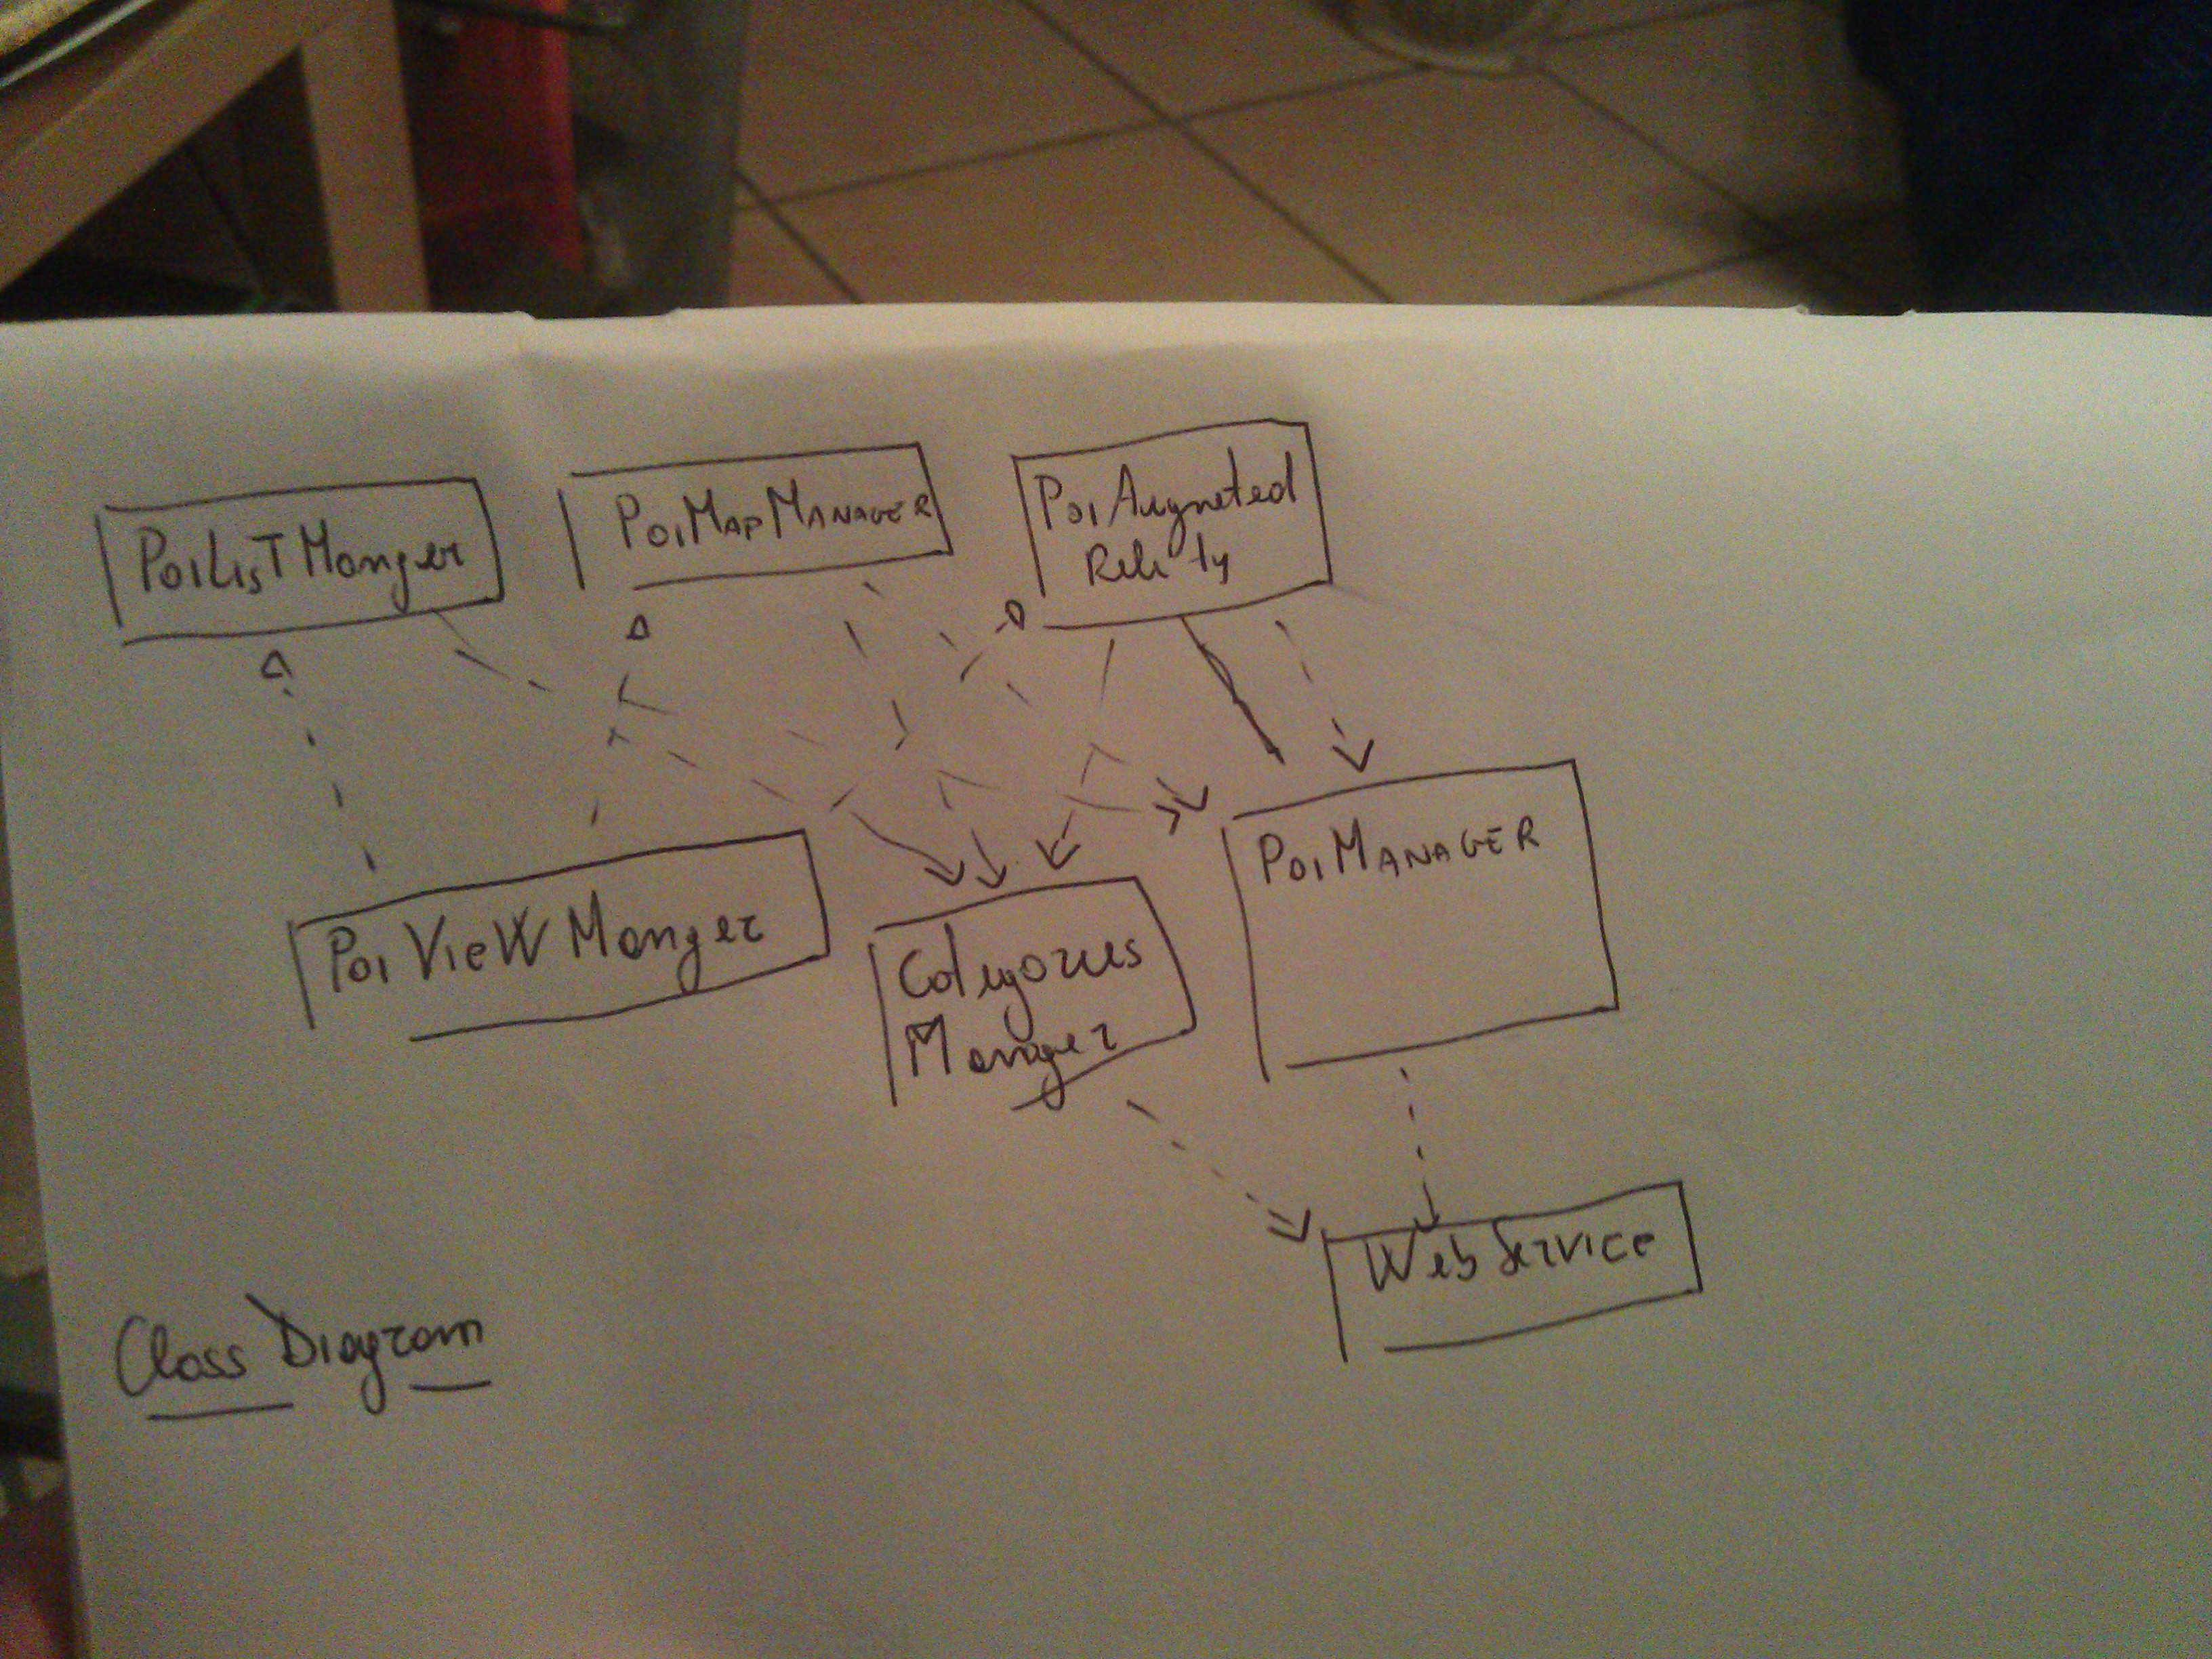 PoiListManger
PoiMapManager
PoiAugneted
Relity
PoiViewManger
Categories
Manger
PoiManager
WebService
Class Diagram